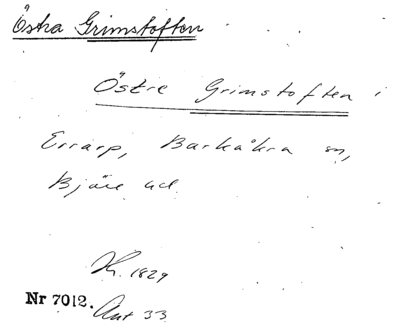 Östra Grimstoften
Östre Grimstoften i
Errarp, Barkåkra sn,
Bjäre hd
K. 1829
Nr 7012. Ant 33